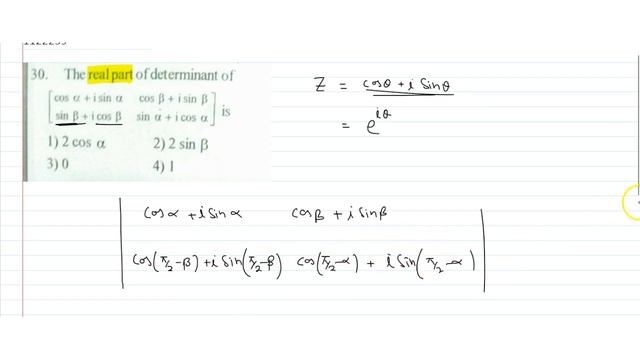 30. The real part of determinant of
cos α + i sin α cos β + i sin β
sin β + i cos β sin α + i cos α
is
1) 2 cos α 2) 2 sin β
3) 0 4) 1
Z = cosθ + i Sinθ
= e^{iθ}
cosα + i Sinα cosβ + i Sinβ
cos(π/2-β) + i Sin(π/2-β) cos(π/2-α) + i Sin(π/2-α)